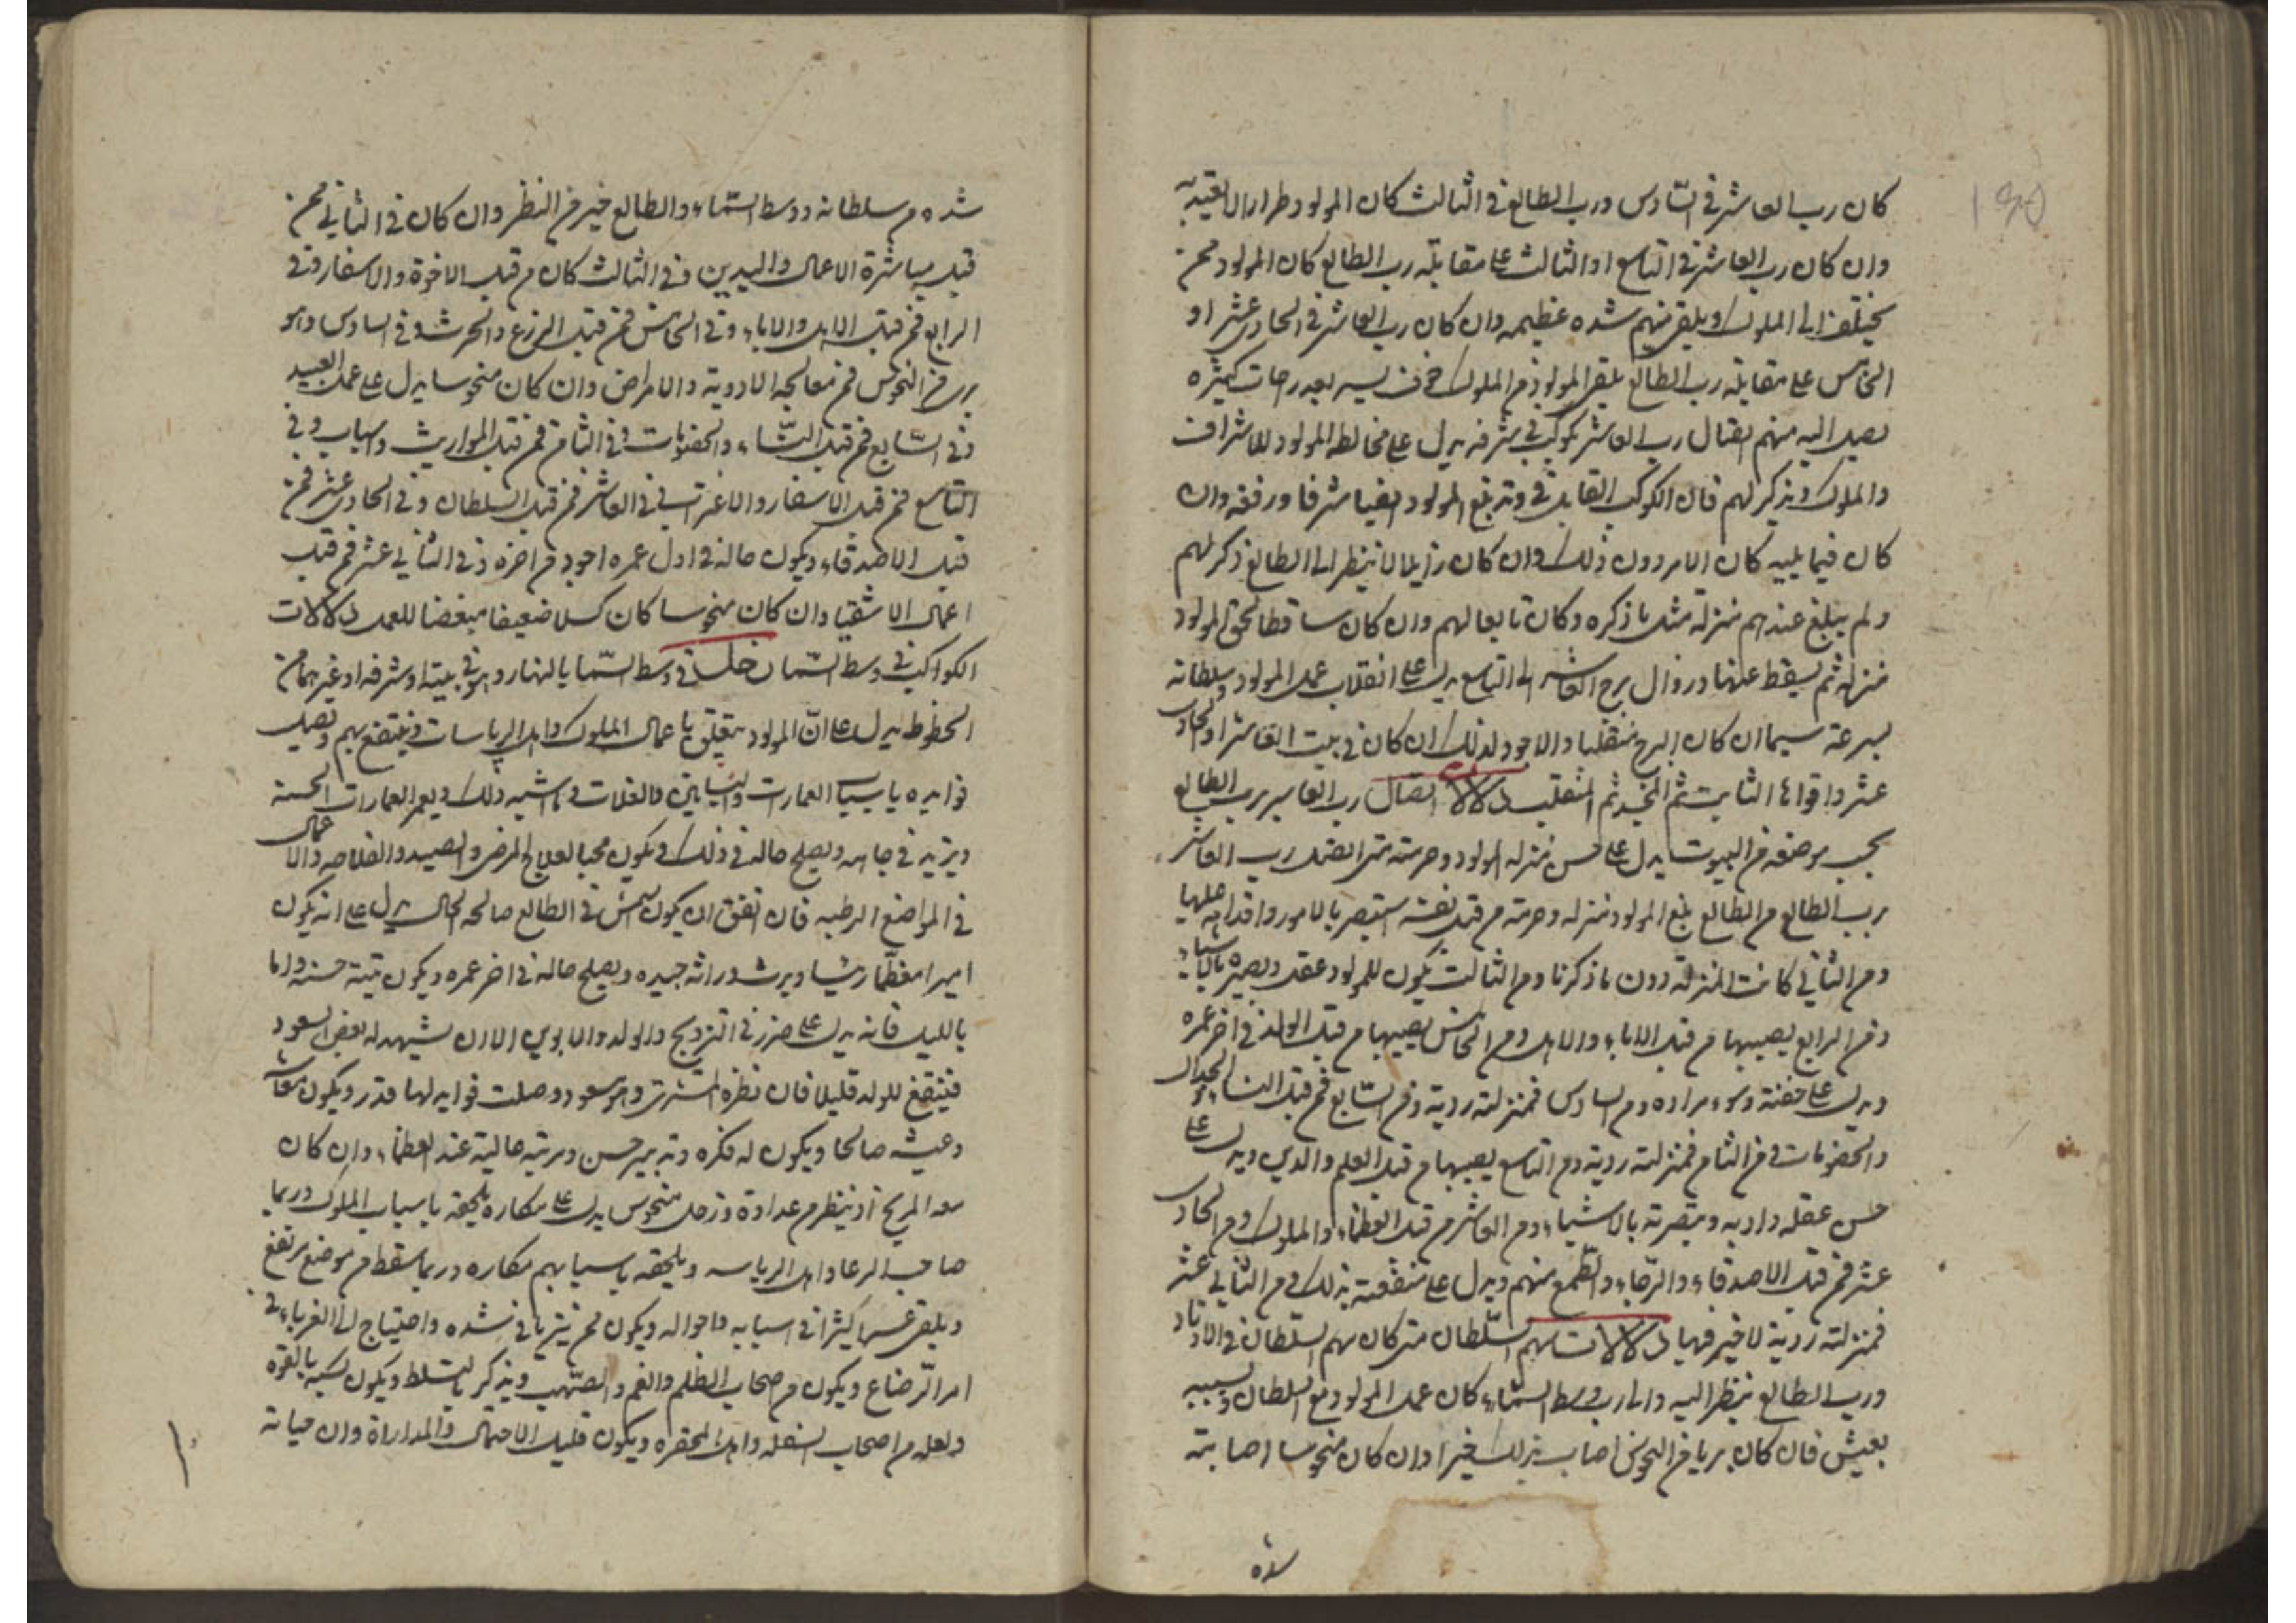 كان رب العاشر في السّادس ورب الطالع في الثالث كان المولود طرارا لا لعقبه
وان كان رب العاشر في التاسع او الثالث على مقابلة رب الطالع كان المولود ممن
يختلف الى الملوك ويلقى منهم شده عظيمه وان كان رب العاشر في الحادى عشر او
الخامس على مقابلة رب الطالع يلقى المولود من الملوك خوف يسير بعد درجات كثيره
يصل اليه منهم اتصال رب العاشر بكوكب في شرفه يدل على مخالطه المولود للاشراف
والملوك ويذكر لهم فان الكوكب القابل في وتد بلغ المولود ايضا شرفا ورفعه وان
كان فيما يليه كان الامر دون ذلك وان كان زايلا لا ينظر الى الطالع ذكر لهم
ولم يبلغ عندهم منزلة مثل ما ذكره وكان تابعا لهم وان كان ساقطا لحق المولود
منزلة ثم يسقط عنها وزوال برج العاشر الى التاسع يدل على انقلاب عمل المولود وسلطانه
بسرعة سيما ان كان البرج منقلبا والاجود لذلك ان كان في بيت العاشر او الحادى
عشر واقواها الثابت ثم المجسد ثم المنقلب دلالات اتصال رب العاشر برب الطالع
بحسب موضعه من البيوت يدل على حسن منزله المولود وحرمته متى اتصل رب العاشر
برب الطالع من الطالع بلغ المولود منزله وحرمته من قبل نفسه استبصر بالامور واقدامه عليها
ومن الثاني كانت المنزلة دون ما ذكرنا ومن الثالث يكون للمولود عقل وبصيره بالاشياء
ومن الرابع يصيبها من قبل الاباء والاهل ومن الخامس يصيبها من قبل الولد في اخر عمره
ويدل على خفته وسوء مراده ومن السادس فمنزلته ردية ومن السّابع فمن قبل النساء والجدال
والخصومات ومن الثامن فمنزلته ردية ومن التاسع يصيبها من قبل العلم والدين ويدل على
حسن عقله وادبه وتبصرته بالاشياء ومن العاشر من قبل العظماء والملوك ومن الحادى
عشر فمن قبل الاصدقاء والرّجاء والطّمع منهم ويدل على منفعته بذلك ومن الثاني عشر
فمنزلته ردية لا خير فيها دلالات سهم السّلطان متى كان سهم السّلطان في الاوتاد
ورب الطالع ينظر اليه والى رب وسط السّماء كان عمل المولود مع السلطان وبسببه
يعيش فان كان بريا من النحوس اصاب بذلك خيرا وان كان منحوسا اصابته
شده
شده من سلطانه ووسط السّماء والطالع خير من النظر وان كان في الثاني فمن
قبل مباشرة الاعمال واليدين وفي الثالث كان من قبل الاخوة والاسفار وفي
الرابع فمن قبل الاهل والاباء وفي الخامس فمن قبل الزرع والحرث وفي السادس وهو
برى من النحوس فمن معالجه الادوية والامراض وان كان منحوسا يدل على عمل العبيد
وفي السّابع فمن قبل النّساء والخصومات وفي الثامن فمن قبل المواريث واسباب وفي
التاسع فمن قبل الاسفار والاغتراب وفي العاشر فمن قبل السلطان وفي الحادى عشر فمن
قبل الاصدقاء ويكون حاله في اول عمره اجود من اخره وفي الثاني عشر فمن قبل
اعمال الاشقيا وان كان منحوسا كان كسلا ضعيفا مبغضا للعمل دلالات
الكواكب في وسط السّما زحل في وسط السّما بالنهار وهو في بيته او شرفه او غيرهما من
الحظوظ يدل على انّ المولود يتعلق باعمال الملوك واهل الرياسات وينتفع بهم وتصل
فوايده باسباب العمارات والبساتين والغلات وما اشبه ذلك ويعمر العمارات الحسنة
ويزيد في جاهه ويصلح حاله في ذلك ويكون محبا لعلاج المرضى والصيد والفلاحه والاعمال
في المواضع الرطبه فان اتفق ان يكون الشمس في الطالع صالحه الحال يدل على انه يكون
اميرا معظّما رئيسا ويرث وراثه جيده ويصلح حاله في اخر عمره ويكون ميتة حسنة واما
بالليل فانه يدل على ضرر في التزويج والولد والابوين الا ان يشهد له بعض السعود
فينتفع للولد قليلا فان نظره المشترى وهو مسعود وصلت فوايد لها قدر ويكون معاشه
وعيشه صالحا ويكون له فكره وتدبير حسن ومرتبة عالية عند العظماء وان كان
معه المريخ او ينظر من عداوة وزحل منحوس يدل على مكاره يلحقه باسباب الملوك وربما
صاحب الرعا واهل الرياسه ويلحقه باسبابهم مكاره وربما سقط من موضع مرتفع
ويلقى عسرا كثيرا في اسبابه واحواله ويكون ممن يتربا في شده واحتياج الى الغرباء في
امر الرّضاع ويكون من اصحاب الظلم والغم والنّهب ويذكر بالتسلط ويكون كسبه بالقوه
ولعله من اصحاب السفله واهل المحقره ويكون قليل الاحتمال والمداراة وان حياته